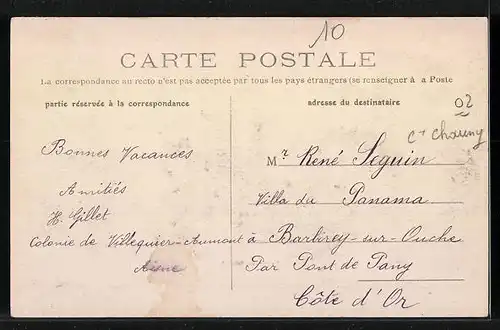 10
CARTE POSTALE
La correspondance au recto n'est pas acceptée par tous les pays étrangers (se renseigner à a Poste
partie réservée à la correspondance
adresse du destinataire
02
Cⁿ Chauny
Bonnes Vacances
Amitiés
H. Gillet
Colonie de Villequier-Aumont
Aisne
Mr René Seguin
Villa du Panama
à Barbirey-sur-Ouche
Par Pont de Pany
Côte d'Or